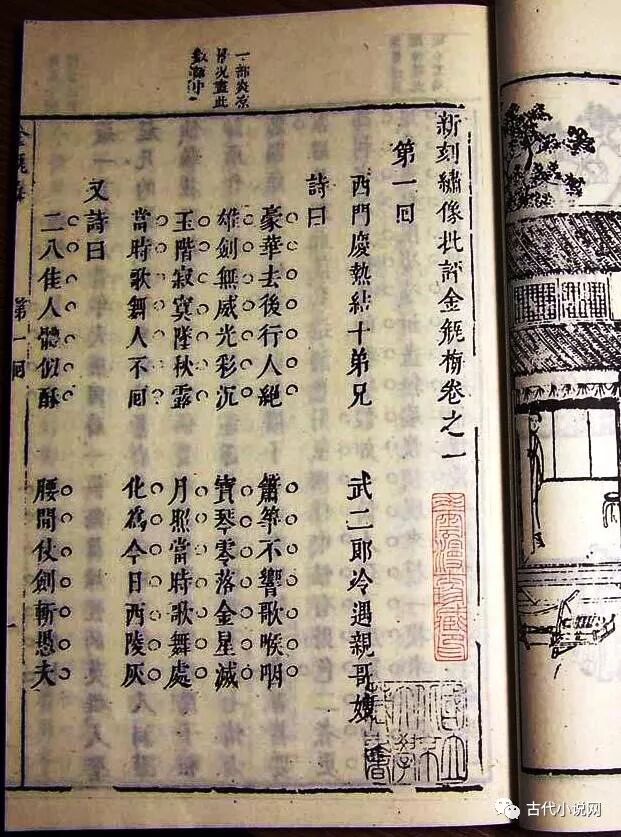 一部炎凉
情况盡此
數語中
新刻繡像批評金瓶梅卷之一
第一回
西門慶熱結十弟兄　武二郎冷遇親哥嫂
詩曰
豪華去後行人絕　簫箏不響歌喉咽
雄劍無威光彩沉　寶琴零落金星滅
玉階寂寞墜秋露　月照當時歌舞處
當時歌舞人不回　化爲今日西陵灰
又詩曰
二八佳人體似酥　腰間仗劍斬愚夫
金瓶梅　第一回
古代小说网